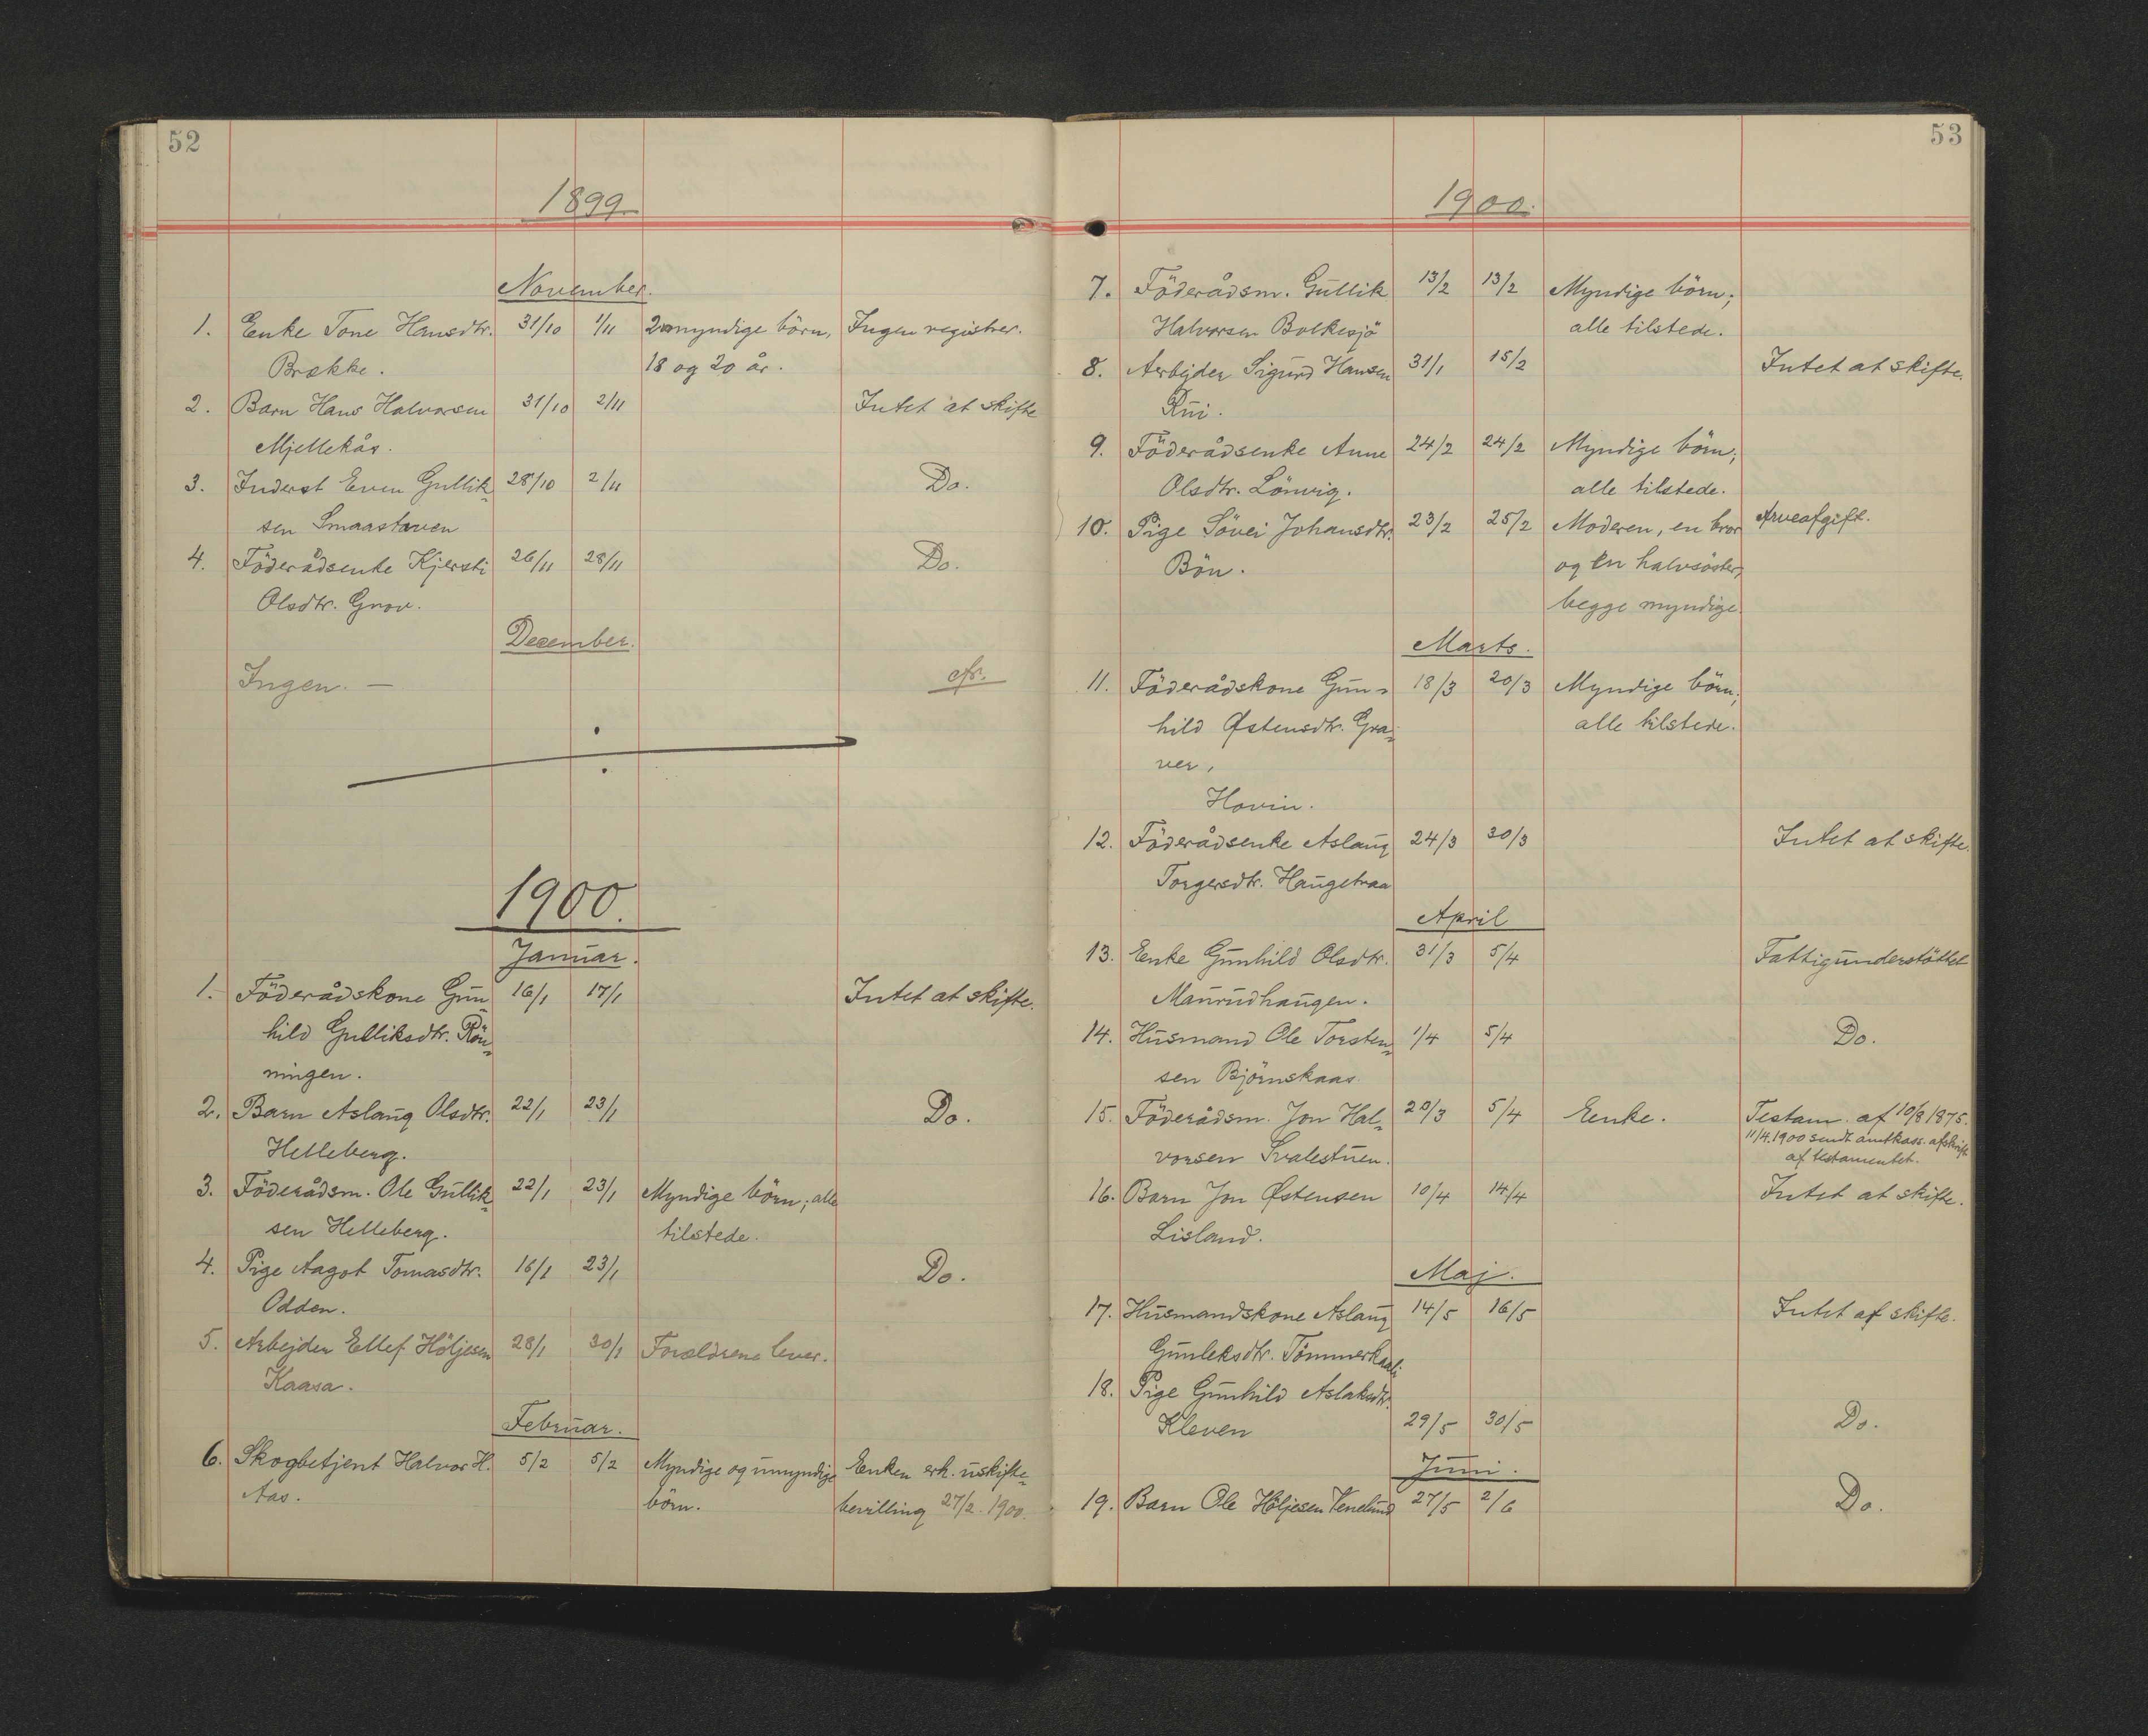 52
1899
November.
1. Enke Tone Hansdtr. 31/10 1/11 2 umyndige börn, Ingen registrer.
Brække. 18 og 20 år.
2. Barn Hans Halvorsen 31/10 2/11 Intet at skifte
Mjellekås.
3. Inderst Even Gullik- 28/10 2/11 Do.
sen Smaastaven
4. Föderådsenke Kjersti 26/11 28/11 Do.
Olsdtr. Grov.
December.
Ingen. —
1900.
Januar.
1. Föderådskone Gun- 16/1 17/1 Intet at skifte.
hild Gulliksdtr. Rön-
ningen.
2. Barn Aslaug Olsdtr. 22/1 23/1 Do.
Helleberg.
3. Föderådsm. Ole Gullik- 22/1 23/1 Myndige börn; alle
sen Helleberg. tilstede.
4. Pige Aagot Tomasdtr. 16/1 23/1 Do.
Odden.
5. Arbejder Ellef Höljesen 28/1 30/1 Forældrene lever.
Kaasa.
Februar.
6. Skogbetjent Halvor H. 5/2 5/2 Myndige og umyndige Enken erh. uskifte-
Aas. börn. bevilling 27/2 1900.
53
1900.
7. Föderådsm. Gullik 13/2 13/2 Myndige börn;
Halvorsen Bolkesjö alle tilstede.
8. Arbejder Sigurd Hansen 31/1 15/2 Intet at skifte.
Rui.
9. Föderådsenke Anne 24/2 24/2 Myndige börn;
Olsdtr. Lönvig. alle tilstede.
10. Pige Sövei Johansdtr. 23/2 25/2 Moderen, en bror Arveafgift.
Bön. og en halvsöster,
begge myndige.
Marts.
11. Föderådskone Gun- 18/3 20/3 Myndige börn;
hild Østensdtr. Gra- alle tilstede.
ver,
Hovin.
12. Föderådsenke Aslaug 24/3 30/3 Intet at skifte.
Torgersdtr. Haugetraa
April
13. Enke Gunhild Olsdtr. 31/3 5/4 Fattigunderstöttet
Maurudhaugen.
14. Husmand Ole Torsten- 1/4 5/4 Do.
sen Björnskaas
15. Föderådsm. Jon Hal- 20/3 5/4 Enke. Testam. af 10/8 1875.
11/4 1900 sendt amtkass. afskrift
vorsen Svalestuen. af testamentet.
16. Barn Jon Østensen 10/4 14/4 Intet at skifte.
Lisland.
Maj.
17. Husmandskone Aslaug 14/5 16/5 Intet af skifte.
Gunleksdtr.
18. Pige Gunhild Aslaksdtr.
Kleven 29/5 30/5 Do.
Juni.
19. Barn Ole Höljesen Venelund 27/5 2/6 Do.